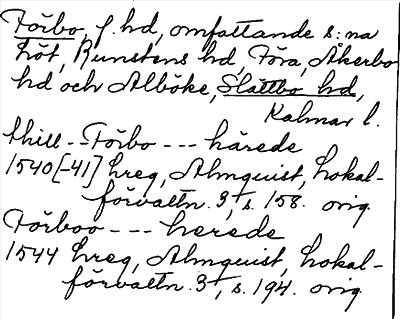 Förbo, f. hd, omfattande s:na
Löt, Runstens hd, Föra, Åkerbo
hd och Alböke, Slättbo hd,
Kalmar l.
thill -- Förbo --- härede
1540[-41] Lreg, Almquist, Lokal-
förvaltn. 3, s. 158. orig.
Förboo --- herede
1544 Lreg, Almquist, Lokal-
förvaltn. 3, s. 194. orig.